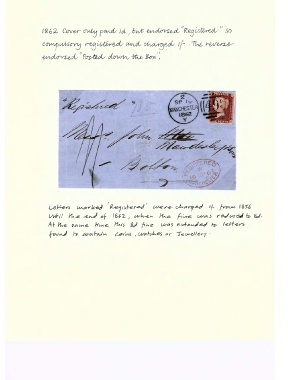 1862 Cover only paid 1d, but endorsed "Registered" so
compulsory registered and charged 1/-. The reverse
endorsed 'Posted down the Box'.
"Registered"
SP 10
MANCHESTER
1862
Messrs John
Manchester
Bolton
REGISTERED
Letters marked 'Registered' were charged 1/- from 1856
until the end of 1862, when the fine was reduced to 8d.
At the same time this 8d fine was extended to letters
found to contain coins, watches or Jewellery